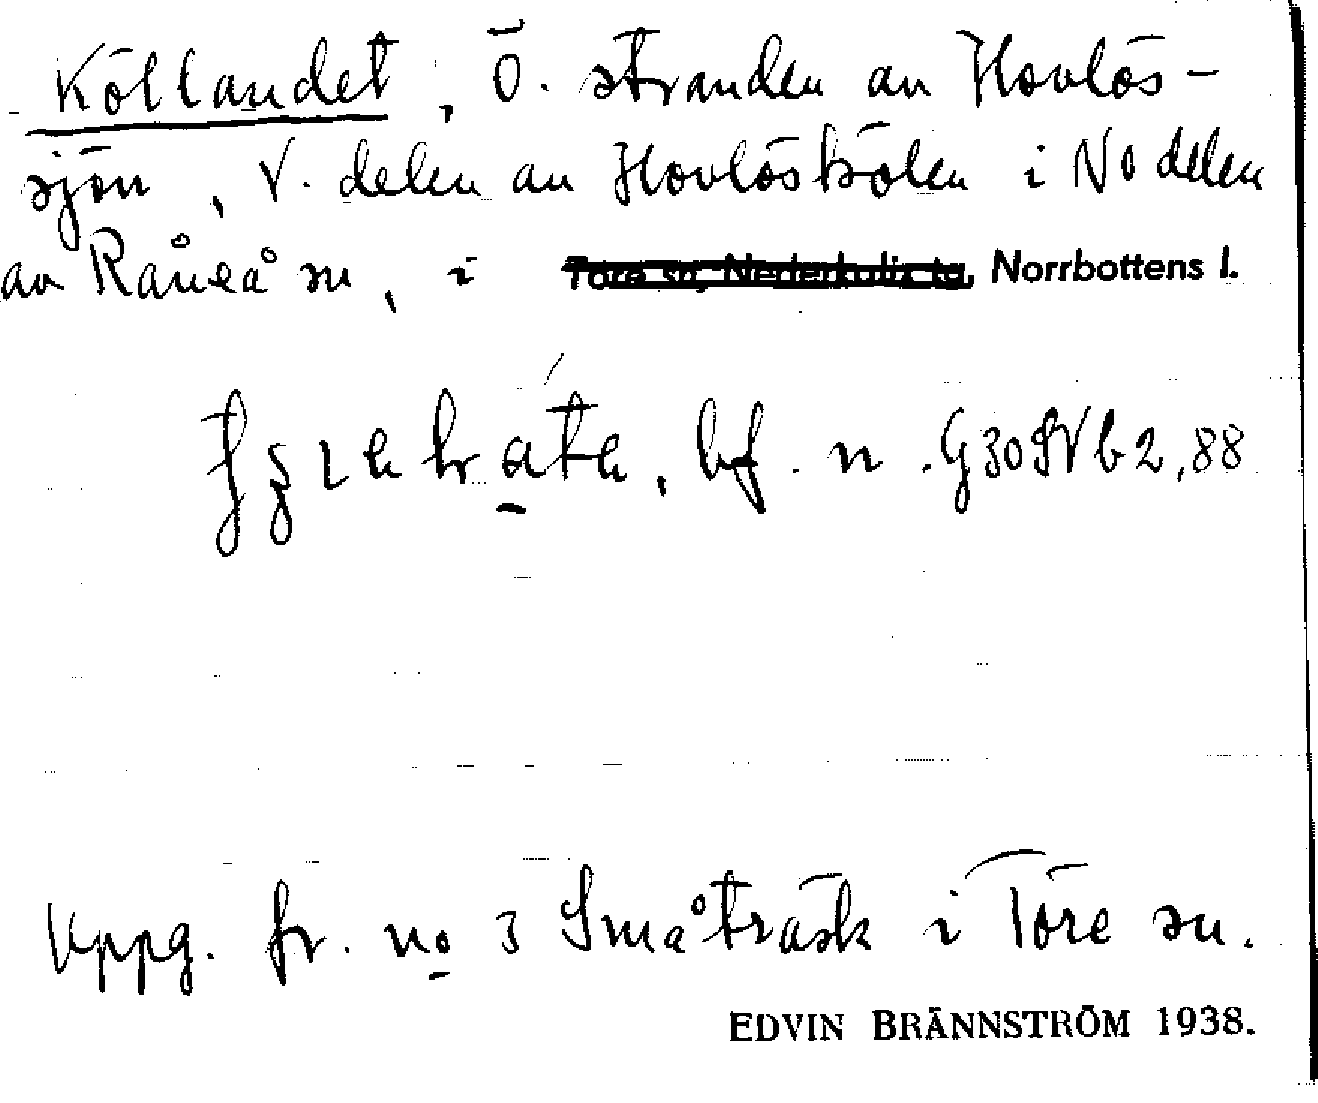 Köllandet, Ö. stranden av Hovlös-
sjön, V. delen av Hovlöskölen i NO delen
av Råneå sn, i Töre sn, Nederkalix tg, Norrbottens l.
bf. n. G30SVb2,88
Uppg. fr. no 3 Småträsk i Töre sn.
EDVIN BRÄNNSTRÖM 1938.